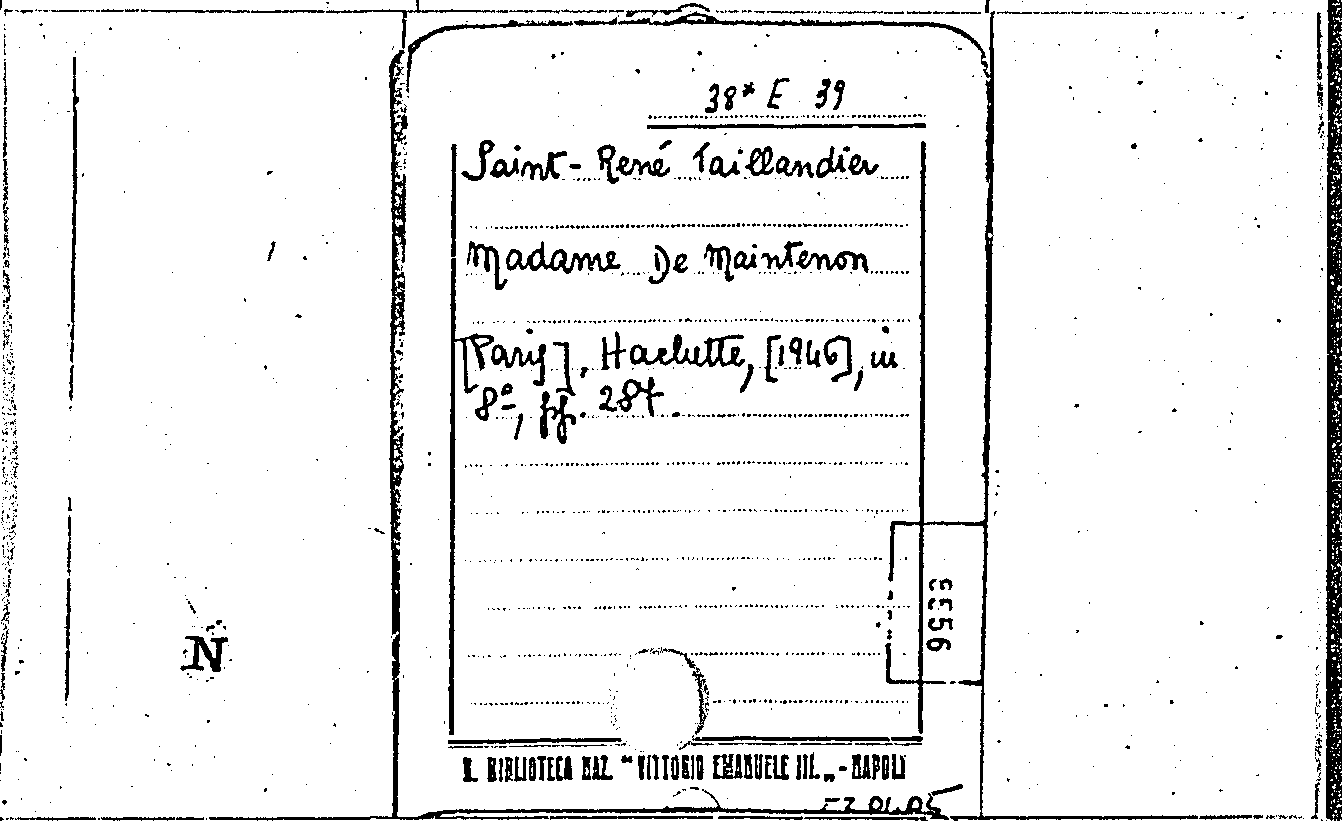 38* E 39
Saint-René Taillandier
Madame De Maintenon
[Paris], Hachette, [1946], in
8º, pp. 287.
N. BIBLIOTECA NAZ. "VITTORIO EMANUELE III„ - NAPOLI
N